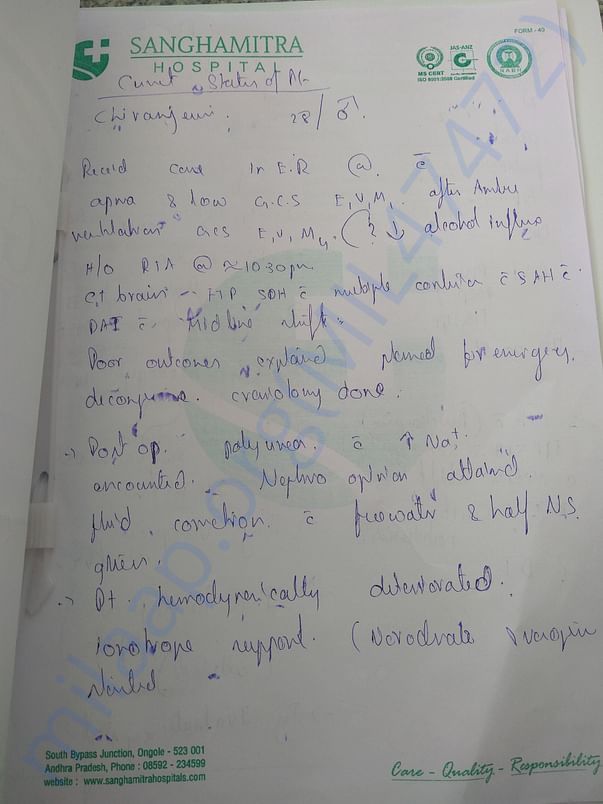 FORM - 40
SANGHAMITRA
HOSPITAL
JAS-ANZ
MS CERT
ISO 9001:2008 Certified
NABH
Status of Pt
Chiranjeevi. 28/♂.
case in E.R @ c̄
apnea & low G.C.S E₁V₁M₁ after Ambu
ventilation GCS E₁V₁M₄. (? alcohol influe
H/O RTA @ ≈ 10:30pm
CT brain - FTP SDH c̄ multiple contusion c̄ SAH c̄
DAI c̄ Midline shift.
Poor outcomes explained planned for emergency
craniotomy done.
→ Post op. polyurea. c̄ ↑ Na⁺.
Nephro opinion
fluid correction. c̄ freewater & half N.S.
given.
→ Pt. hemodynamically deteriorated.
ionotrope support. (
started
milaap.org(MIL47472)
South Bypass Junction, Ongole - 523 001
Andhra Pradesh, Phone : 08592 - 234599
website : www.sanghamitrahospitals.com
Care - Quality - Responsibility